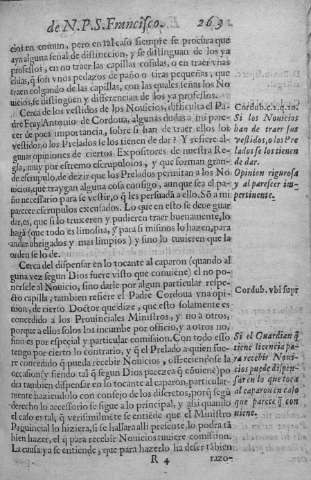 de N.P.S. Francisco. 269
cios en comun, pero en tal caso siempre se procura que
aya alguna señal de distinccion, y se distinguan de los ya
professos, en no traer las capillas cosidas, o en traer vnas
chias, q̃ son vnos pedazos de paño o tiras pequeñas, que
traen colgando de las capillas, con las quales señas los No
uicios, se distinguen y differencian de los ya professos.
Cerca de los vestidos de los Nouicios, difficulta el Pa
dre Fray Antonio de Cordoua, algunas dudas a mi pare-
cer de poca importancia, sobre si han de traer ellos los
vestidos, o los Prelados se los tienen de dar? Y refiere al-
gunas opiniones de ciertos Expositores de nuestra Re-
gla, muy por estremo escrupulosos, y que forman gran-
de escrupulo, de dezir que los Prelados permitan a los No
uicios, que traygan alguna cosa consigo, aunque sea al pa-
no necessario para se vestir, o q̃ les persuadã a ello. Sõ a mi
parecer escrupulos excusados. Lo que en esto se deue guar
dar, es, que si lo truxeren y pudieren traer buenamente, lo
hagã (que todo es limosna, y para si mismos lo hazen, para
andar abrigados y mas limpios) y sino lo tuuieren que la
orden se lo de.
Cerca del dispensar en lo tocante al caparon (quando al
guna vez segun Dios fuere visto que conuiene) el no po-
nerse le al Nouicio, sino darle por algun particular respe-
cto capilla, tambien refiere el Padre Cordoua vna opi-
nion, de cierto Doctor que dize, que esto solamente es
concedido a los Prouinciales Ministros, y no a otros,
porque a ellos solos les incumbe por officio, y a otros no,
sino es por especial y particular comission. Con todo esso
tengo por cierto lo contrario, y q̃ el Prelado a quien fue-
re concedido q̃ pueda recebir Nouicios, offreciendose la
occasion (y siendo tal q̃ segun Dios parezca q̃ cõuiene) po
dra tambien dispensar en lo tocante al caparon, particular-
mente haziendolo con consejo de los discretos, porq̃ segũ
derecho lo accessorio se sigue a lo principal, y assi quando
el caso es tal, q̃ verisimilmẽte se entiẽde que el Ministro
Prouincial lo hiziera, si se hallara alli presente, lo podra tã
bien hazer, el q̃ para recebir Nouicios tuuiere comission.
La causa ya se entiende, que para hazerlo ha de ser tãbien
R 4 razo-
Cordub.c.2.q.10.
Si los Nouicios
han de traer sus
vestidos, o los Pre
lados se los tienen
de dar.
Opinion rigurosa
y al parescer im-
pertinente.
Cordub. vbi supr
Si el Guardian q̃
tiene licencia pa
ra recebir Noui-
cios puede dispen-
sar en lo que toca
al caparon en caso
que parece q̃ con
uiene.